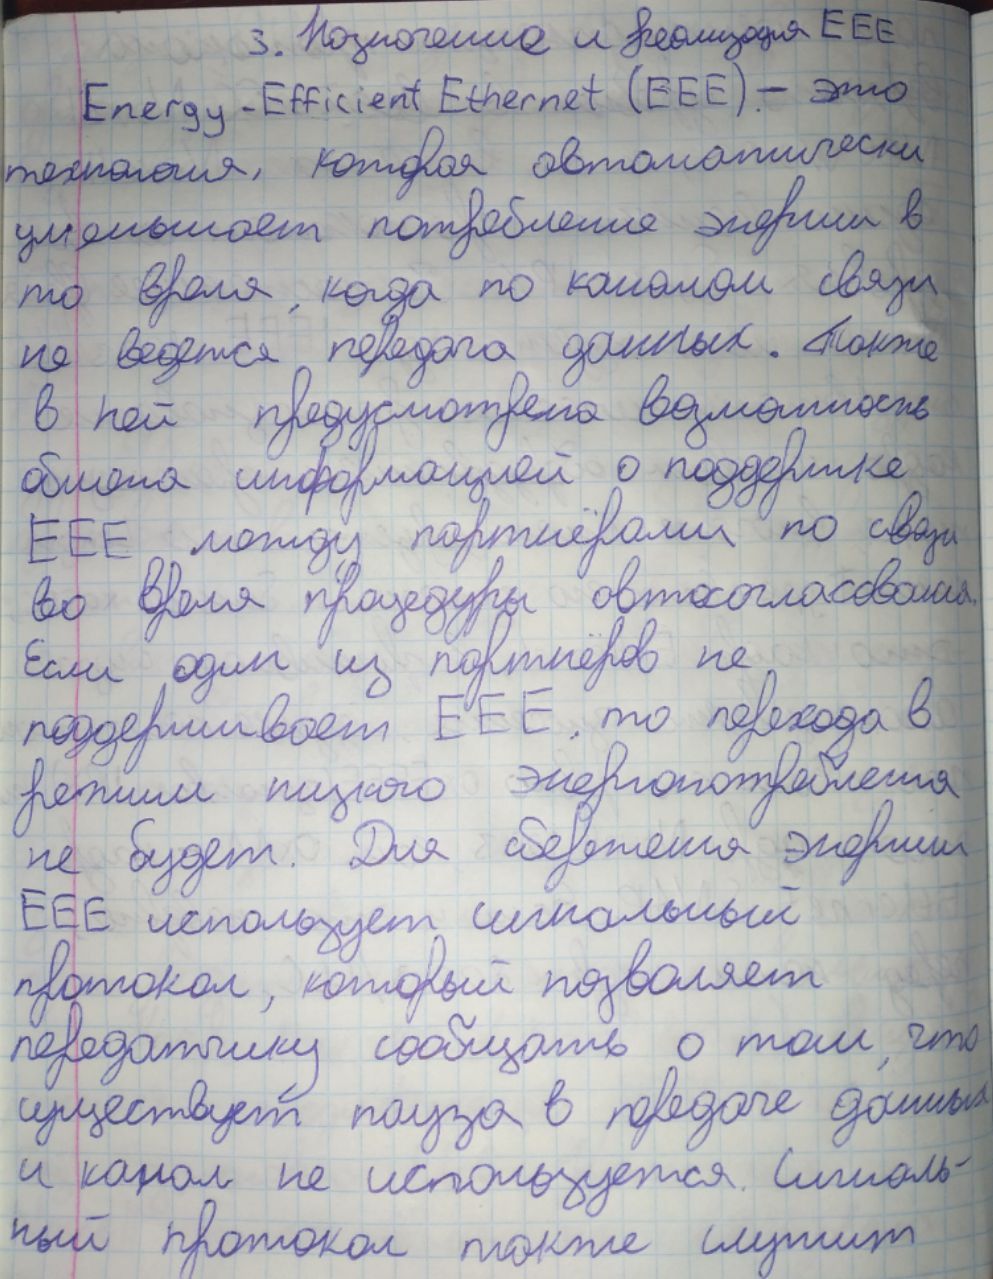 3. Назначение и реализация EEE
Energy-Efficient Ethernet (EEE) - это
технология, которая автоматически
уменьшает потребление энергии в
то время, когда по каналам связи
не ведется передача данных. Также
в ней предусмотрена возможность
обмена информацией о поддержке
EEE между партнёрами по связи
во время процедуры автосогласования.
Если один из партнёров не
поддерживает EEE, то перехода в
режим низкого энергопотребления
не будет. Для сбережения энергии
EEE использует сигнальный
протокол, который позволяет
передатчику сообщать о том, что
существует пауза в передаче данных
и канал не используется. Сигналь-
ный протокол также служит